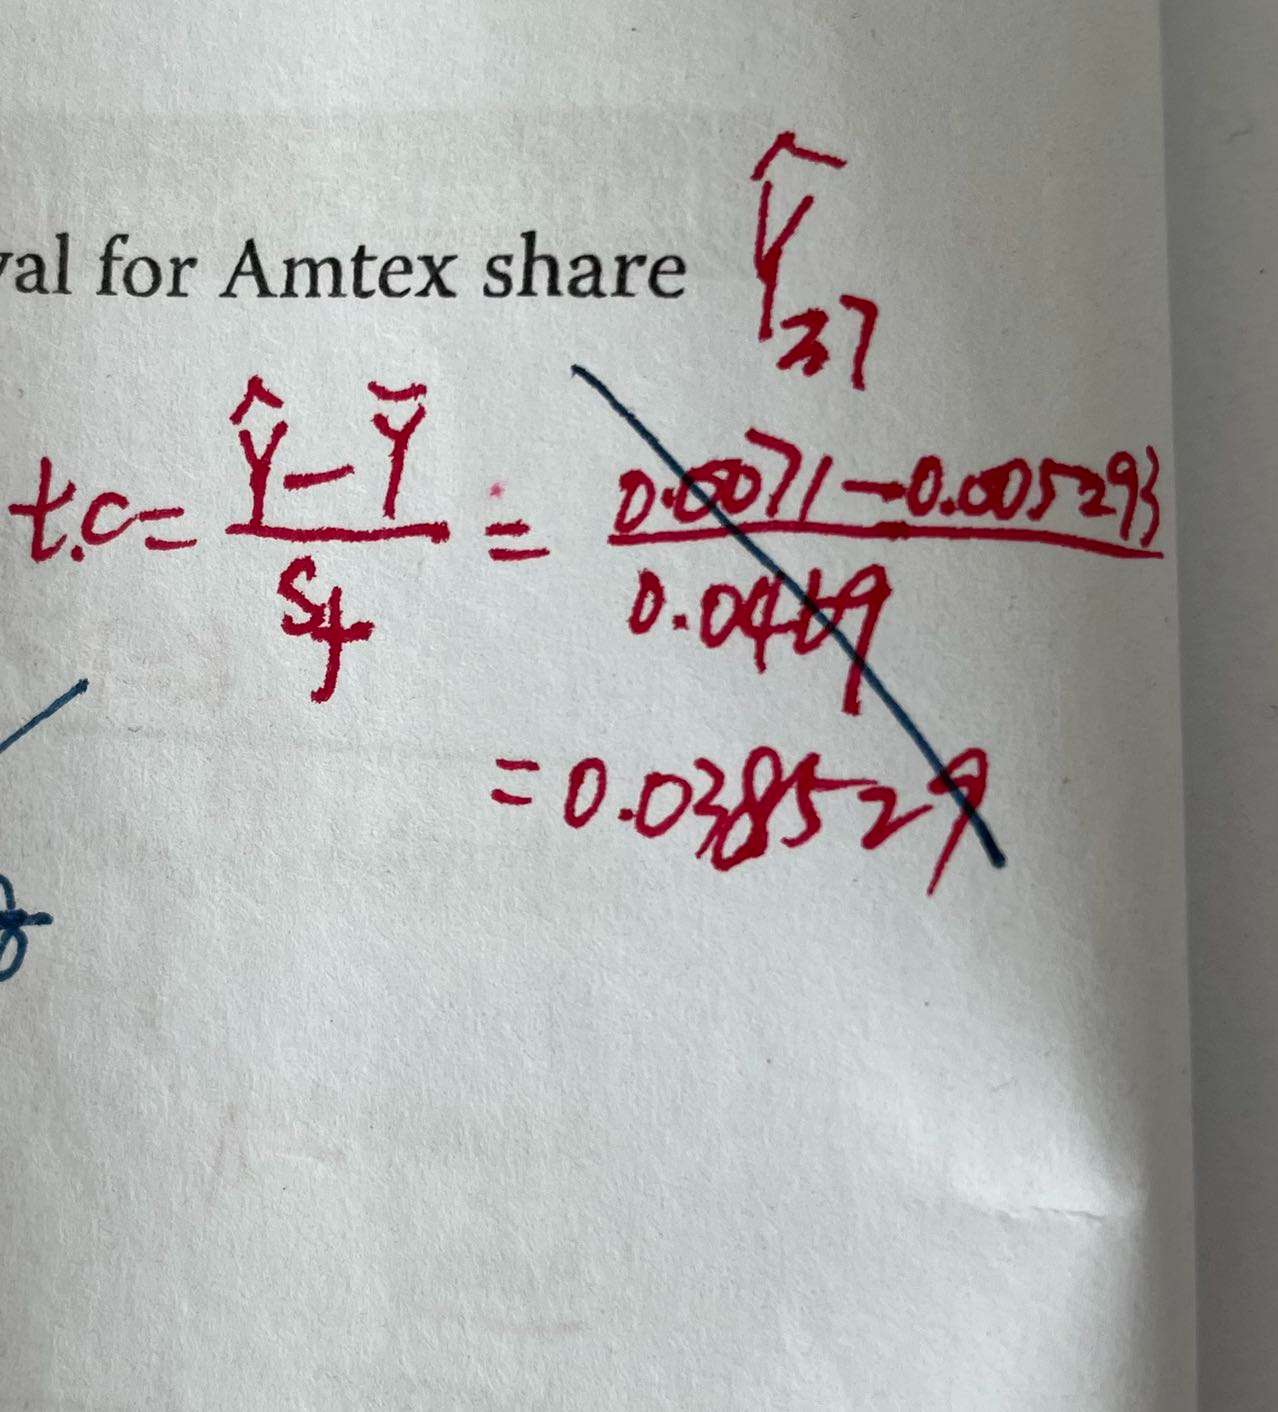 val for Amtex share Ŷ37
t.c = (Ŷ − Ȳ) / Sf = (0.0071 − 0.005293) / 0.0469
= 0.038529